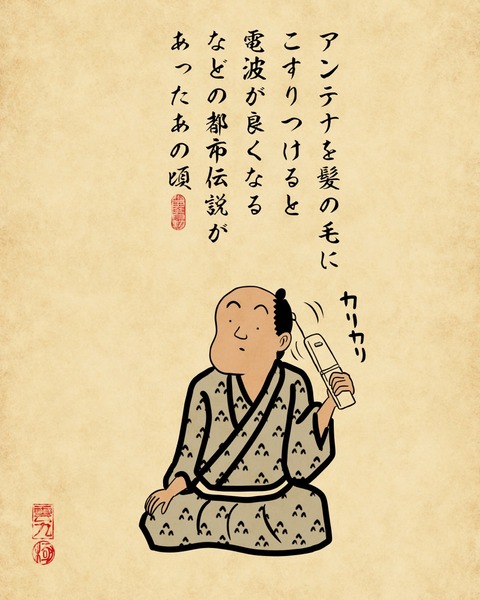 アンテナを髪の毛に
こすりつけると
電波が良くなる
などの都市伝説が
あったあの頃
カリカリ